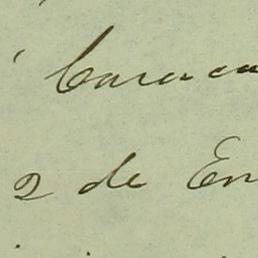 Caraca
2 de En